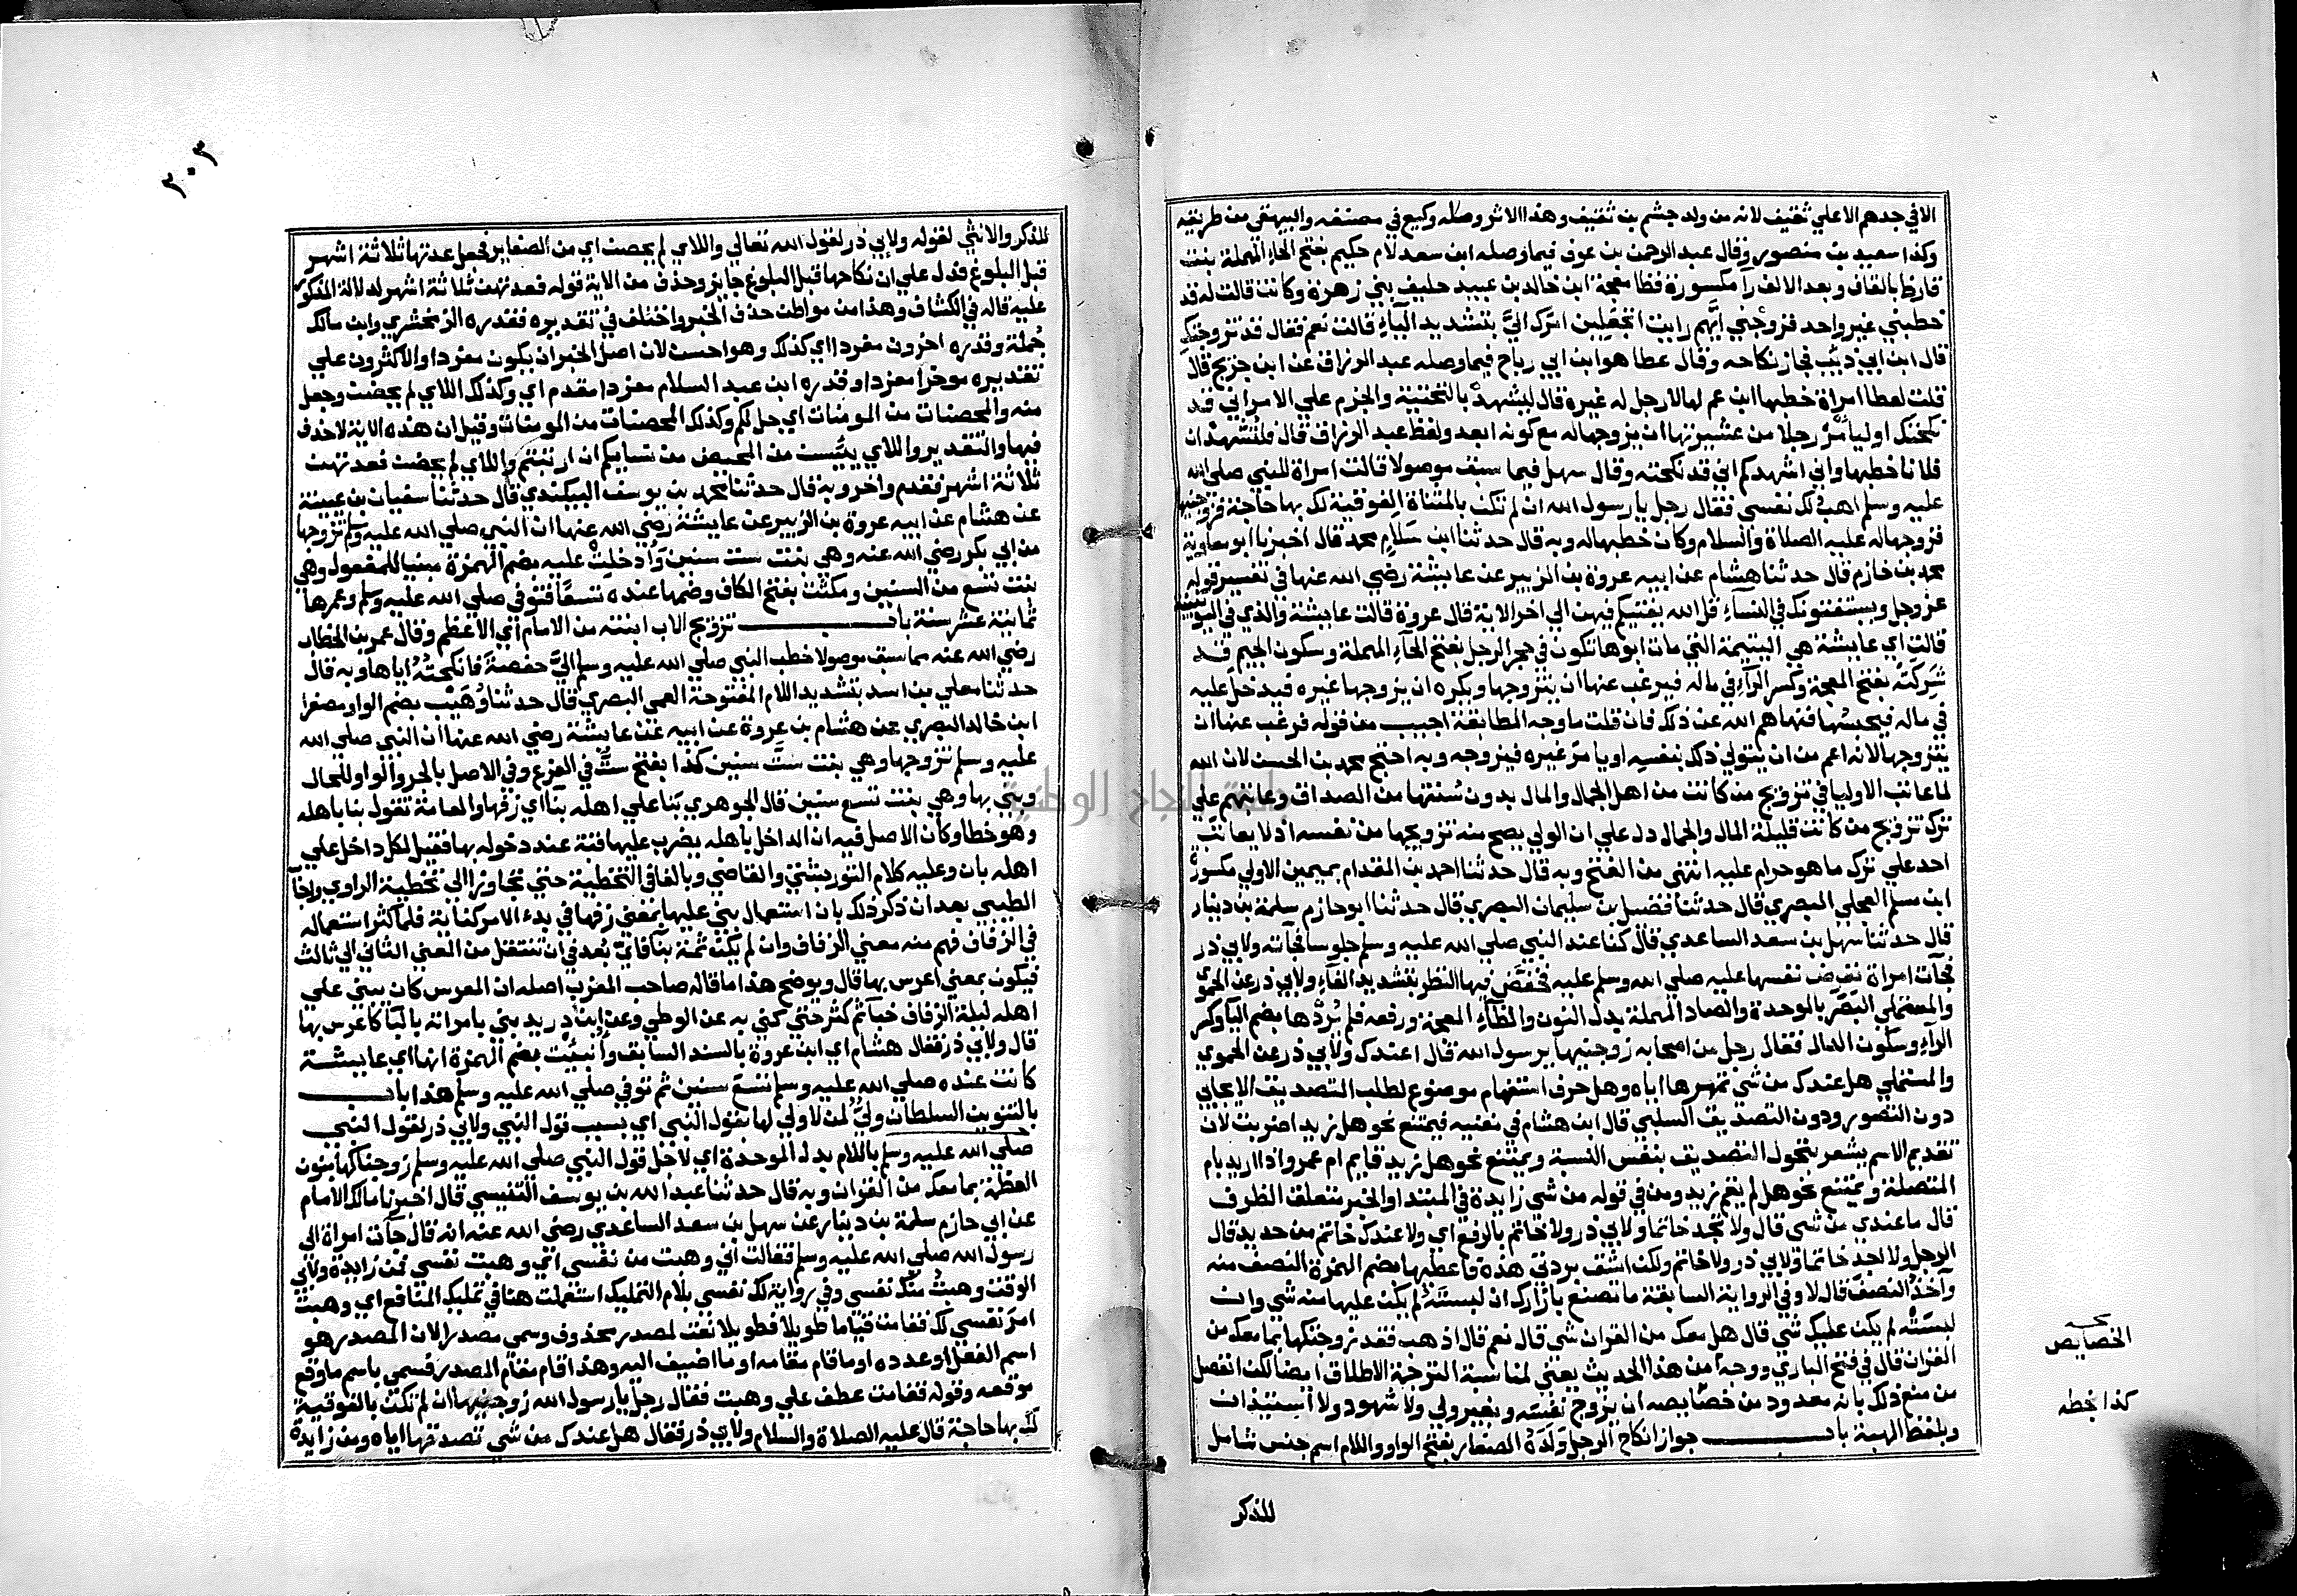 الا في جدهم الاعلي ثقيف لانه من ولد جشم بن ثقيف وهذا الاثر وصله وكيع في مصنفه والبيهقي من طريقه
وكذا سعيد بن منصور وقال عبد الرحمن بن عوف فيما وصله ابن سعد لام حكيم بفتح الحاء المهملة بنت
قارظ بالقاف وبعد الالف را مكسورة فظا معجمة ابن خالد بن عبيد حليف بني زهرة وكانت قالت له قد
خطبني غير واحد فزوجني ايهم رايت اتجعلين امرك اليَّ بتشديد الياء قالت نعم فقال قد تزوجتك
قال ابن ابي ذيب فجاز نكاحه وقال عطا هو ابن ابي رباح فيما وصله عبد الرزاق عن ابن جريج قال
قلت لعطا امراة خطبها ابن عم لها لا رجل له غيره قال ليشهد بالتحتية والجزم علي الامر اني قد
نكحتك او ليامر رجلا من عشيرتها ان يزوجها له مع كونه ابعد ولفظ عبد الرزاق قال فلتشهد ان
فلانا خطبها واني اشهدكم اني قد نكحته وقال سهل فيما سبق موصولا قالت امراة للنبي صلى الله
عليه وسلم اهب لك نفسي فقال رجل يا رسول الله ان لم تكن بالمثناة الفوقية لك بها حاجة فزوجنيها
فزوجها له عليه الصلاة والسلام وكان خطبها له وبه قال حدثنا ابن سَلَامٍ محمد قال اخبرنا ابو معاوية
محمد بن خازم قال حدثنا هشام عن ابيه عروة بن الزبير عن عايشة رضي الله عنها في تفسير قوله
عز وجل ويستفتونك في النساء قل الله يفتيكم فيهن الي اخر الاية قال عروة قالت عايشة والذي في اليونينية
قالت اي عايشة هي اليتيمة التي مات ابوها تكون في حجر الرجل بفتح الحاء المهملة وسكون الجيم قد
شَرِكَتْهُ بفتح المعجمة وكسر الراء في ماله فيرغب عنها ان يتزوجها ويكره ان يزوجها غيره فيدخل عليه
في ماله فيحبسُها فنهاهم الله عن ذلك فان قلت ما وجه المطابقة اجيب من قوله فرغب عنها ان
يتزوجها لانه اعم من ان يتولي ذلك بنفسه او يامر غيره فيزوجه وبه احتج محمد بن الحسن لان الله
لما عاتب الاوليا في تزويج من كانت من اهل الجمال والمال بدون سُنتها من الصداق وعاتبهم علي
ترك تزويج من كانت قليلة المال والجمال دل علي ان الولي يصح منه تزويجها من نفسه اذ لا يعاتب
احد علي ترك ما هو حرام عليه انتهي من الفتح وبه قال حدثنا احمد بن المقدام بميمين الاولي مكسورة
ابن مسلم العجلي البصري قال حدثنا فضيل بن سليمان البصري قال حدثنا ابو حازم سلمة بن دينار
قال حدثنا سهل بن سعد الساعدي قال كنا عند النبي صلي الله عليه وسلم جلوسا فجآته ولابي ذر
فجآت امراة تعرض نفسها عليه صلي الله وسلم عليه فخفّض فيها النظر بتشديد الفاء ولابي ذر عن الحموي
والمستملي البَصَر بالموحدة والصاد المهملة بدل النون والظاء المعجمة ورفعه فلم يُرِدها بضم اليا وكسر
الراء وسكون الدال فقال رجل من اصحابه زوجنيها يا رسول الله قال اعندك ولابي ذر عن الحموي
والمستملي هل عندك من شي تمهرها اياه وهل حرف استفهام موضوع لطلب التصديق الايجابي
دون التصور ودون التصديق السلبي قال ابن هشام في مغنيه فيمتنع نحو هل زيد اضربت لان
تقديم الاسم يشعر بحصول التصديق بنفس النسبة ويمتنع نحو هل زيد قايم ام عمرو اذا اريد بام
المتصلة ويمتنع نحو هل لم يقم زيد ومن في قوله من شي زايدة في المبتدا والخبر متعلق الظرف
قال ما عندي من شي قال ولا تجد خاتما ولابي ذر ولا خاتم بالرفع اي ولا عندك خاتم من حديد قال
الرجل ولا اجد خاتما ولابي ذر ولا خاتم ولكن اشق بردتي هذه فاعطيها بضم الهمزة النصف منه
وآخذُ النصفَ قال لا وفي الرواية السابقة ما تصنع بازارك ان لبستَهُ لم يكن عليها منه شي وان
لبسَتْه لم يكن عليك شي قال هل معك من القران شي قال نعم قال اذهب فقد زوجتكها بما معك من
القران قال في فتح الباري ووجه من هذا الحديث يعني لمناسبة الترجمة الاطلاق ايضا لكن انفصل
من منع ذلك بانه معدود من خصايصه ان يزوج نفسه وبغير ولي ولا شهود ولا استيذان
وبلفظ الهبة باب جواز انكاح الرجل وَلَدَهُ الصغار بفتح الواو واللام اسم جنس شامل
الخصايص
كذا بخطه
للذكر
٣٠٣
للذكر والانثي لقوله ولابي ذر لقول الله تعالي واللاي لم يحضن اي من الصغاير فجعل عدتها ثلاثة اشهر
قبل البلوغ فدل علي ان نكاحها قبل البلوغ جايز وحذف من الاية قوله فعدتهن ثلاثة اشهر لدلالة المذكور
عليه قاله في الكشاف وهذا من مواطن حذف الخبر واختلف في تقديره فقدره الزمخشري وابن مالك
جُملة وقدره اخرون مفردا اي كذلك وهو احسن لان اصل الخبر ان يكون مفردا والاكثرون علي
تقديره موخرا مفردا وقدره ابن عبد السلام مفردا مقدم اي وكذلك اللاي لم يحضن وجعل
منه والمحصنات من المومنات اي حل لكم وكذلك المحصنات من المومنات وقيل ان هذه الاية لا حذف
فيها والتقدير واللاي ييسن من المحيض من نسايكم ان ارتبتم واللاي لم يحضن فعدتهن
ثلاثة اشهر فقدم واخر وبه قال حدثنا محمد بن يوسف البيكندي قال حدثنا سفيان بن عيينة
عن هشام عن ابيه عروة بن الزبير عن عايشة رضي الله عنها ان النبي صلي الله عليه وسلم تزوجها
من ابي بكر رضي الله عنه وهي بنت ست سنين وأُدخِلت عليه بضم الهمزة مبنيا للمفعول وهي
بنت تسع من السنين ومكثت بفتح الكاف وضمها عنده تسعًا فتوفي صلي الله عليه وسلم وعمرها
ثمانية عشر سنة باب تزويج الاب ابنته من الامام اي الاعظم وقال عمر بن الخطاب
رضي الله عنه مما سبق موصولا خطب النبي صلي الله عليه وسلم اليَّ حفصة فانكحتُه اياها وبه قال
حدثنا معلي بن اسد بتشديد اللام المفتوحة العمي البصري قال حدثنا وُهَيْب بضم الواو مصغرا
ابن خالد البصري عن هشام بن عروة عن ابيه عن عايشة رضي الله عنها ان النبي صلي الله
عليه وسلم تزوجها وهي بنت ستَّ سنين كذا بفتح ستَّ في الفرع وفي الاصل بالجر والواو للحال
وبني بها وهي بنت تسع سنين قال الجوهري بَنا علي اهله بنآ اي زفها والعامة تقول بنا باهله
وهو خطا وكان الاصل فيه ان الداخل باهله يضرب عليها قبة عند دخوله بها فقيل لكل داخل علي
اهله بان وعليه كلام التوربشتي والقاضي وبالغا في التخطية حتي تجاوزا الي تخطية الراوي واجاب
الطيبي بعد ان ذكر ذلك بان استعمال بني عليها بمعني زفها في بدء الامر كناية فلما كثر استعماله
في الزفاف فهم منه معني الزفاف وان لم يكن ثمة بنآ فاي بُعد في ان تنتقل من المعني الثاني الي ثالث
فيكون بمعني اعرس بها قال ويوضح هذا ما قاله صاحب المغرب اصله ان المعرس كان يبني علي
اهله ليلة الزفاف خبآ ثم كثر حتي كني به عن الوطي وعن ابن دريد بني بامراته بالبا كاعرس بها
قال ولابي ذر فقال هشام اي ابن عروة بالسند السابق وأُنبئتُ بضم الهمزة انها اي عايشة
كانت عنده صلي الله عليه وسلم تسع سنين ثم توفي صلي الله عليه وسلم هذا باب
بالتنوين السلطان وليٌّ لمن لا ولي لها بقول النبي اي بسبب قول النبي ولابي ذر لقول النبي
صلي الله عليه وسلم باللام بدل الموحدة اي لاجل قول النبي صلي الله عليه وسلم زوجناكها بنون
العظمة بما معك من القران وبه قال حدثنا عبد الله بن يوسف التنيسي قال اخبرنا مالك الامام
عن ابي حازم سلمة بن دينار عن سهل بن سعد الساعدي رضي الله عنه انه قال جآت امراة الي
رسول الله صلي الله عليه وسلم فقالت اني وهبت من نفسي اي وهبت نفسي فمن زايدة ولابي
الوقت وهبتُ منك نفسي وفي رواية لك نفسي بلام التمليك استعملت هنا في تمليك المنافع اي وهبت
امر نفسي لك فقامت قياما طويلا فطويلا نعت لمصدر محذوف وسمي مصدرا لان المصدر هو
اسم الفعل او عدده او ما قام مقامه او ما اضيف اليه وهذا قام مقام المصدر فسمي باسم ما وقع
موقعه وقوله فقامت عطف علي وهبت فقال رجل يا رسول الله زوجنيها ان لم تكن بالفوقية
لك بها حاجة قال عليه الصلاة والسلام ولابي ذر فقال هل عندك من شي تصدقها اياه ومن زايدة
جامعة النجاح الوطنية